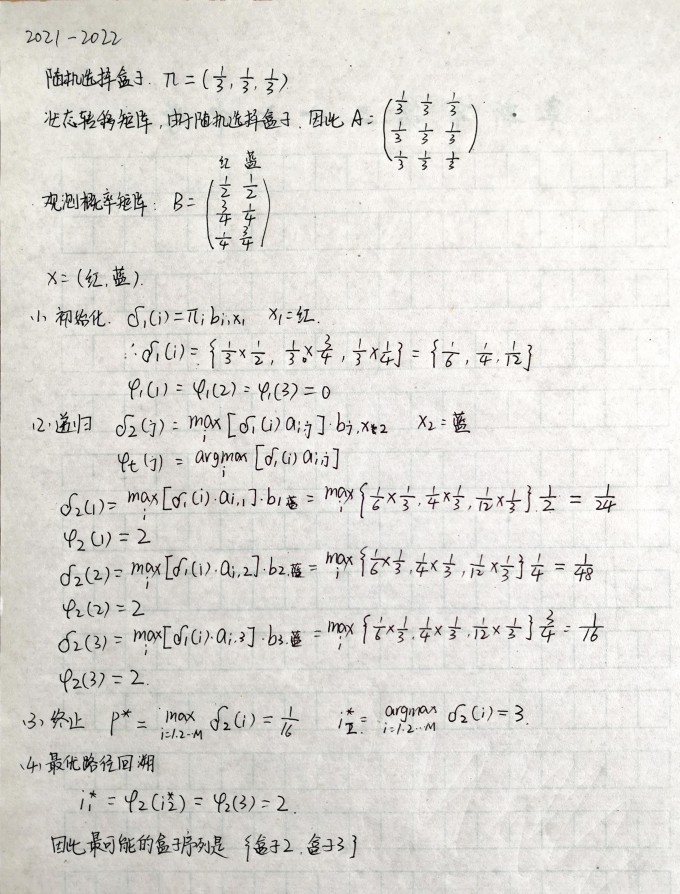 2021-2022
随机选择盒子. π = (1/3, 1/3, 1/3)
状态转移矩阵, 由于随机选择盒子. 因此 A = (1/3 1/3 1/3
1/3 1/3 1/3
1/3 1/3 1/3)
红 蓝
观测概率矩阵: B = (1/2 1/2
3/4 1/4
1/4 3/4)
X = (红, 蓝).
(1) 初始化. δ₁(i) = πᵢ bᵢ,x₁ x₁ = 红.
∴ δ₁(i) = {1/3 × 1/2, 1/3 × 3/4, 1/3 × 1/4} = {1/6, 1/4, 1/12}
φ₁(1) = φ₁(2) = φ₁(3) = 0
(2) 递归 δ₂(j) = max_i [δ₁(i) aᵢ,ⱼ] · bⱼ,x₂ X₂ = 蓝
φₜ(j) = argmax_i [δ₁(i) aᵢ,ⱼ]
δ₂(1) = max_i [δ₁(i) · aᵢ,₁] · b₁蓝 = max_i {1/6 × 1/3, 1/4 × 1/3, 1/12 × 1/3} 1/2 = 1/24
φ₂(1) = 2
δ₂(2) = max_i [δ₁(i) · aᵢ,₂] · b₂,蓝 = max_i {1/6 × 1/3, 1/4 × 1/3, 1/12 × 1/3} 1/4 = 1/48
φ₂(2) = 2
δ₂(3) = max_i [δ₁(i) · aᵢ,₃] · b₃,蓝 = max_i {1/6 × 1/3, 1/4 × 1/3, 1/12 × 1/3} 3/4 = 1/16
φ₂(3) = 2.
(3) 终止 P* = max_{i=1,2…M} δ₂(i) = 1/16 i₂* = argmax_{i=1,2…M} δ₂(i) = 3.
(4) 最优路径回溯
i₁* = φ₂(i₂*) = φ₂(3) = 2.
因此最可能的盒子序列是 {盒子2, 盒子3}